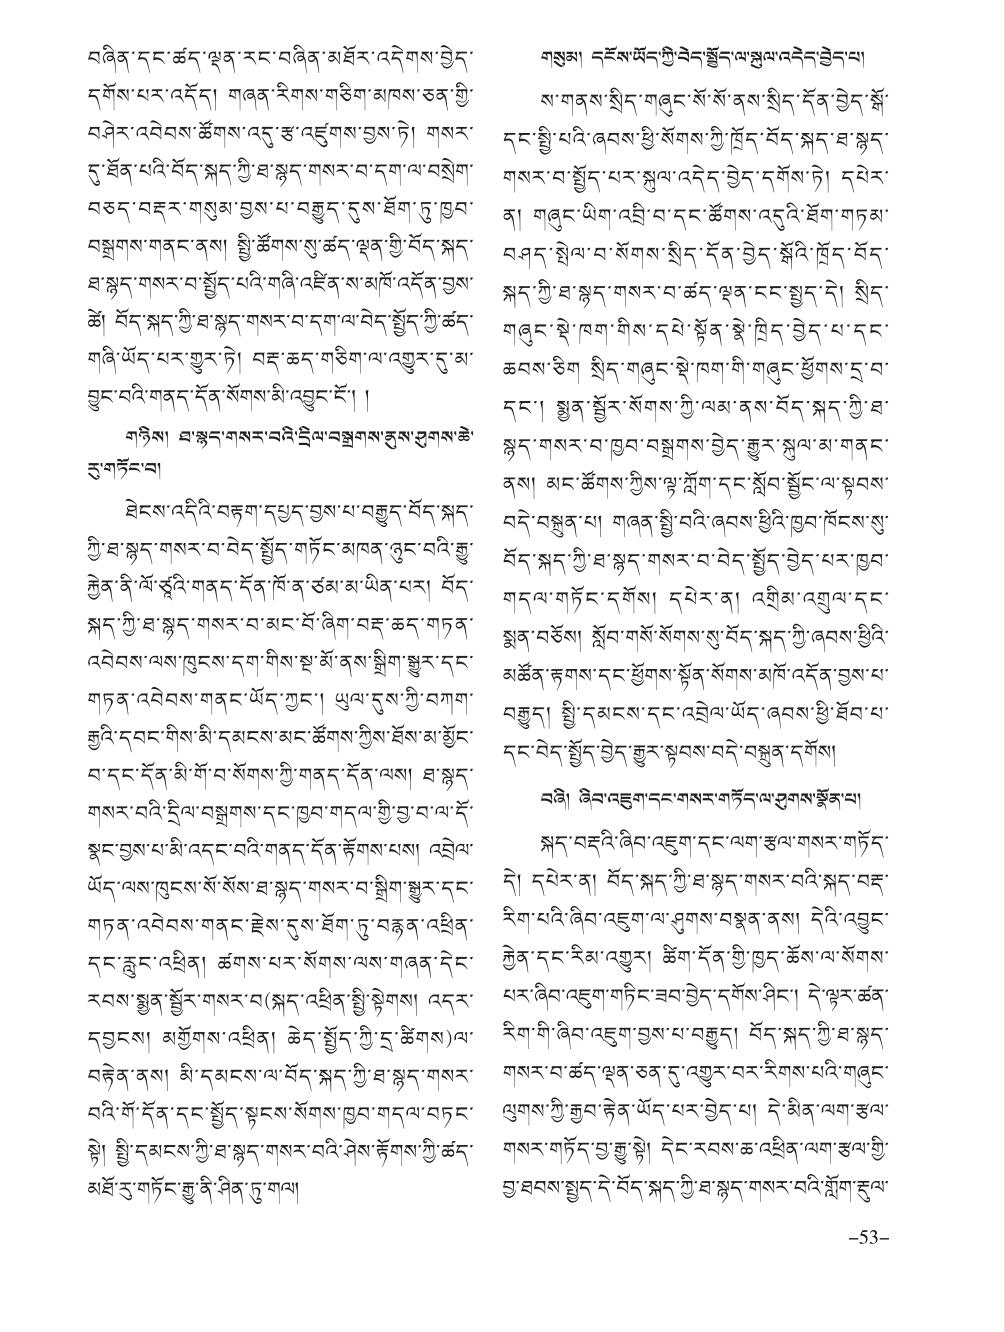 བཞིན་དང་ཚད་ལྡན་རང་བཞིན་མཐོར་འདེགས་བྱེད་
དགོས་པར་འདོད། གཞན་རིགས་གཅིག་མཁས་ཅན་གྱི་
བཤེར་འབེབས་ཚོགས་འདུ་རྩ་འཛུགས་བྱས་ཏེ། གསར་
དུ་ཐོན་པའི་བོད་སྐད་ཀྱི་ཐ་སྙད་གསར་བ་དག་ལ་བསྲེག་
བཅད་བརྡར་གསུམ་བྱས་པ་བརྒྱུད་དུས་ཐོག་ཏུ་ཁྱབ་
བསྒྲགས་གནང་ནས། སྤྱི་ཚོགས་སུ་ཚད་ལྡན་གྱི་བོད་སྐད་
ཐ་སྙད་གསར་བ་སྤྱོད་པའི་གཞི་འཛིན་ས་མཁོ་འདོན་བྱས་
ཚེ། བོད་སྐད་ཀྱི་ཐ་སྙད་གསར་བ་དག་ལ་བེད་སྤྱོད་ཀྱི་ཚད་
གཞི་ཡོད་པར་གྱུར་ཏེ། བརྡ་ཆད་གཅིག་ལ་འགྱུར་དུ་མ་
བྱུང་བའི་གནད་དོན་སོགས་མི་འབྱུང་ངོ་། །
གཉིས། ཐ་སྙད་གསར་བའི་དྲིལ་བསྒྲགས་ནུས་ཤུགས་ཆེ་
རུ་གཏོང་བ།
ཐེངས་འདིའི་བརྟག་དཔྱད་བྱས་པ་བརྒྱུད་བོད་སྐད་
ཀྱི་ཐ་སྙད་གསར་བ་བེད་སྤྱོད་གཏོང་མཁན་ཉུང་བའི་རྒྱུ་
རྐྱེན་ནི་ལོ་ཙཱའི་གནད་དོན་ཁོ་ན་ཙམ་མ་ཡིན་པར། བོད་
སྐད་ཀྱི་ཐ་སྙད་གསར་བ་མང་པོ་ཞིག་བརྡ་ཆད་གཏན་
འབེབས་ལས་ཁུངས་དག་གིས་སྔ་མོ་ནས་སྒྲིག་སྒྱུར་དང་
གཏན་འབེབས་གནང་ཡོད་ཀྱང་། ཡུལ་དུས་ཀྱི་བཀག་
རྒྱའི་དབང་གིས་མི་དམངས་མང་ཚོགས་ཀྱིས་ཐོས་མ་མྱོང་
བ་དང་དོན་མི་གོ་བ་སོགས་ཀྱི་གནད་དོན་ལས། ཐ་སྙད་
གསར་བའི་དྲིལ་བསྒྲགས་དང་ཁྱབ་གདལ་གྱི་བྱ་བ་ལ་དོ་
སྣང་བྱས་པ་མི་འདང་བའི་གནད་དོན་རྟོགས་པས། འབྲེལ་
ཡོད་ལས་ཁུངས་སོ་སོས་ཐ་སྙད་གསར་བ་སྒྲིག་སྒྱུར་དང་
གཏན་འབེབས་གནང་རྗེས་དུས་ཐོག་ཏུ་བརྙན་འཕྲིན་
དང་རླུང་འཕྲིན། ཚགས་པར་སོགས་ལས་གཞན་དེང་
རབས་སྨྱན་སྦྱོར་གསར་བ(སྐད་འཕྲིན་སྤྱི་སྟེགས། འདར་
དབྱངས། མགྱོགས་འཕྲིན། ཆེད་སྤྱོད་ཀྱི་དྲ་ཚིགས)ལ་
བརྟེན་ནས། མི་དམངས་ལ་བོད་སྐད་ཀྱི་ཐ་སྙད་གསར་
བའི་གོ་དོན་དང་སྤྱོད་སྟངས་སོགས་ཁྱབ་གདལ་བཏང་
སྟེ། སྤྱི་དམངས་ཀྱི་ཐ་སྙད་གསར་བའི་ཤེས་རྟོགས་ཀྱི་ཚད་
མཐོ་རུ་གཏོང་རྒྱུ་ནི་ཤིན་ཏུ་གལ།
གསུམ། དངོས་ཡོད་ཀྱི་བེད་སྤྱོད་ལ་སྐུལ་འདེད་བྱེད་པ།
ས་གནས་སྲིད་གཞུང་སོ་སོ་ནས་སྲིད་དོན་བྱེད་སྒོ་
དང་སྤྱི་པའི་ཞབས་ཕྱི་སོགས་ཀྱི་ཁྲོད་བོད་སྐད་ཐ་སྙད་
གསར་བ་སྤྱོད་པར་སྐུལ་འདེད་བྱེད་དགོས་ཏེ། དཔེར་
ན། གཞུང་ཡིག་འབྲི་བ་དང་ཚོགས་འདུའི་ཐོག་གཏམ་
བཤད་སྤེལ་བ་སོགས་སྲིད་དོན་བྱེད་སྒོའི་ཁྲོད་བོད་
སྐད་ཀྱི་ཐ་སྙད་གསར་བ་ཚད་ལྡན་ངང་སྤྱད་དེ། སྲིད་
གཞུང་སྡེ་ཁག་གིས་དཔེ་སྟོན་སྣེ་ཁྲིད་བྱེད་པ་དང་
ཆབས་ཅིག སྲིད་གཞུང་སྡེ་ཁག་གི་གཞུང་ཕྱོགས་དྲ་བ་
དང་། སྨྱན་སྦྱོར་སོགས་ཀྱི་ལམ་ནས་བོད་སྐད་ཀྱི་ཐ་
སྙད་གསར་བ་ཁྱབ་བསྒྲགས་བྱེད་རྒྱུར་སྐུལ་མ་གནང་
ནས། མང་ཚོགས་ཀྱིས་ལྟ་ཀློག་དང་སློབ་སྦྱོང་ལ་སྟབས་
བདེ་བསྐྲུན་པ། གཞན་སྤྱི་བའི་ཞབས་ཕྱིའི་ཁྱབ་ཁོངས་སུ་
བོད་སྐད་ཀྱི་ཐ་སྙད་གསར་བ་བེད་སྤྱོད་བྱེད་པར་ཁྱབ་
གདལ་གཏོང་དགོས། དཔེར་ན། འགྲིམ་འགྲུལ་དང་
སྨན་བཅོས། སློབ་གསོ་སོགས་སུ་བོད་སྐད་ཀྱི་ཞབས་ཕྱིའི་
མཚོན་རྟགས་དང་ཕྱོགས་སྟོན་སོགས་མཁོ་འདོན་བྱས་པ་
བརྒྱུད། སྤྱི་དམངས་དང་འབྲེལ་ཡོད་ཞབས་ཕྱི་ཐོབ་པ་
དང་བེད་སྤྱོད་བྱེད་རྒྱུར་སྟབས་བདེ་བསྐྲུན་དགོས།
བཞི། ཞིབ་འཇུག་དང་གསར་གཏོད་ལ་ཤུགས་སྣོན་པ།
སྐད་བརྡའི་ཞིབ་འཇུག་དང་ལག་རྩལ་གསར་གཏོད་
དེ། དཔེར་ན། བོད་སྐད་ཀྱི་ཐ་སྙད་གསར་བའི་སྐད་བརྡ་
རིག་པའི་ཞིབ་འཇུག་ལ་ཤུགས་བསྣན་ནས། དེའི་འབྱུང་
རྐྱེན་དང་རིམ་འགྱུར། ཚིག་དོན་གྱི་ཁྱད་ཆོས་ལ་སོགས་
པར་ཞིབ་འཇུག་གཏིང་ཟབ་བྱེད་དགོས་ཤིང་། དེ་ལྟར་ཚན་
རིག་གི་ཞིབ་འཇུག་བྱས་པ་བརྒྱུད། བོད་སྐད་ཀྱི་ཐ་སྙད་
གསར་བ་ཚད་ལྡན་ཅན་དུ་འགྱུར་བར་རིགས་པའི་གཞུང་
ལུགས་ཀྱི་རྒྱབ་རྟེན་ཡོད་པར་བྱེད་པ། དེ་མིན་ལག་རྩལ་
གསར་གཏོད་བྱ་རྒྱུ་སྟེ། དེང་རབས་ཆ་འཕྲིན་ལག་རྩལ་གྱི་
བྱ་ཐབས་སྤྱད་དེ་བོད་སྐད་ཀྱི་ཐ་སྙད་གསར་བའི་གློག་རྡུལ་
–53–